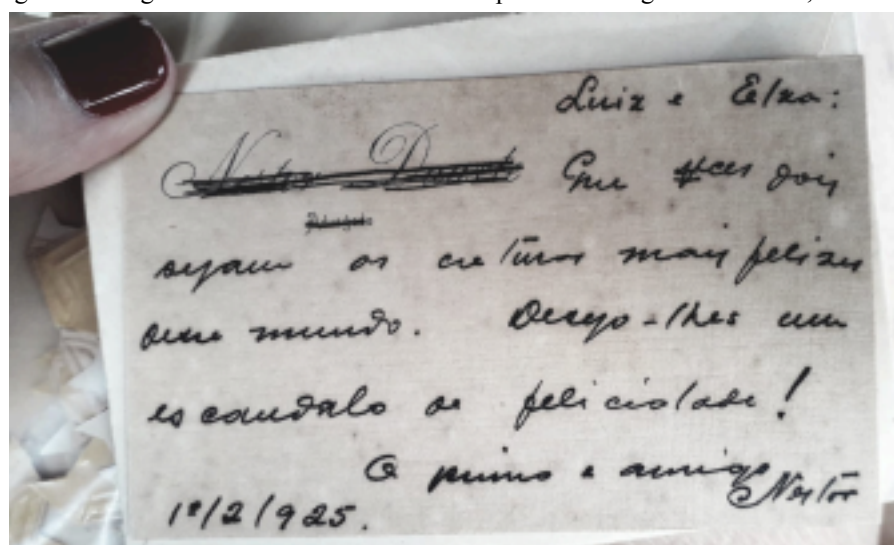 Luiz e Elza:
Nestor Duarte
Que vocês dois
sejam as creaturas mais felizes
desse mundo. Desejo-lhes um
escandalo de felicidade!
O primo e amigo
Nestôr
1º/2/925.